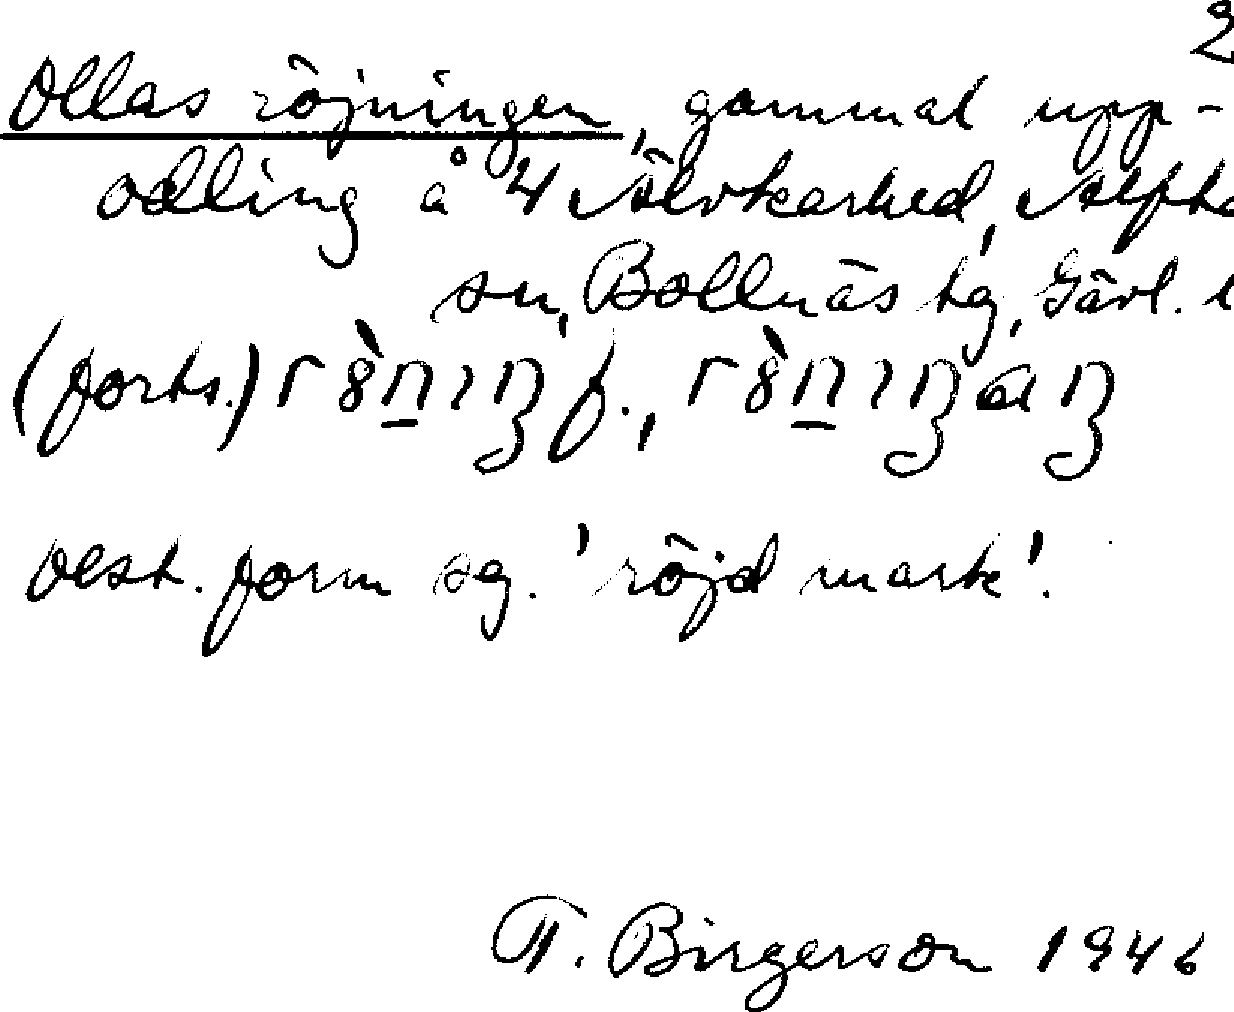 2
Ollas röjningen, gammal upp-
odling å 4 Älvkarhed, Alfta
sn, Bollnäs tg, Gävl. l
(forts.) f.,
best. form sg. 'röjd mark'.
T. Birgerson 1946